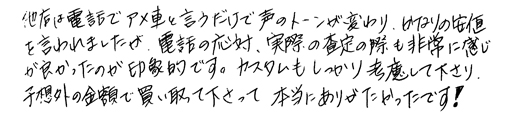 他店は電話でアメ車と言うだけで声のトーンが変わり、かなりの安値
を言われましたが、電話の応対、実際の査定の際も非常に感じ
が良かったのが印象的です。カスタムもしっかり考慮して下さり、
予想外の金額で買い取って下さって 本当にありがたかったです!